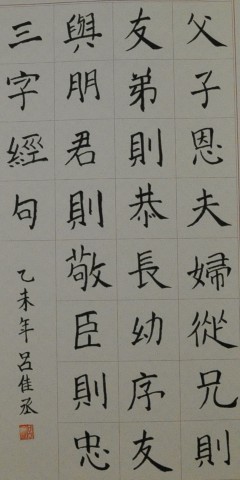 父子恩夫婦從兄則
友弟則恭長幼序友
與朋君則敬臣則忠
三字經句
乙未年呂佳丞